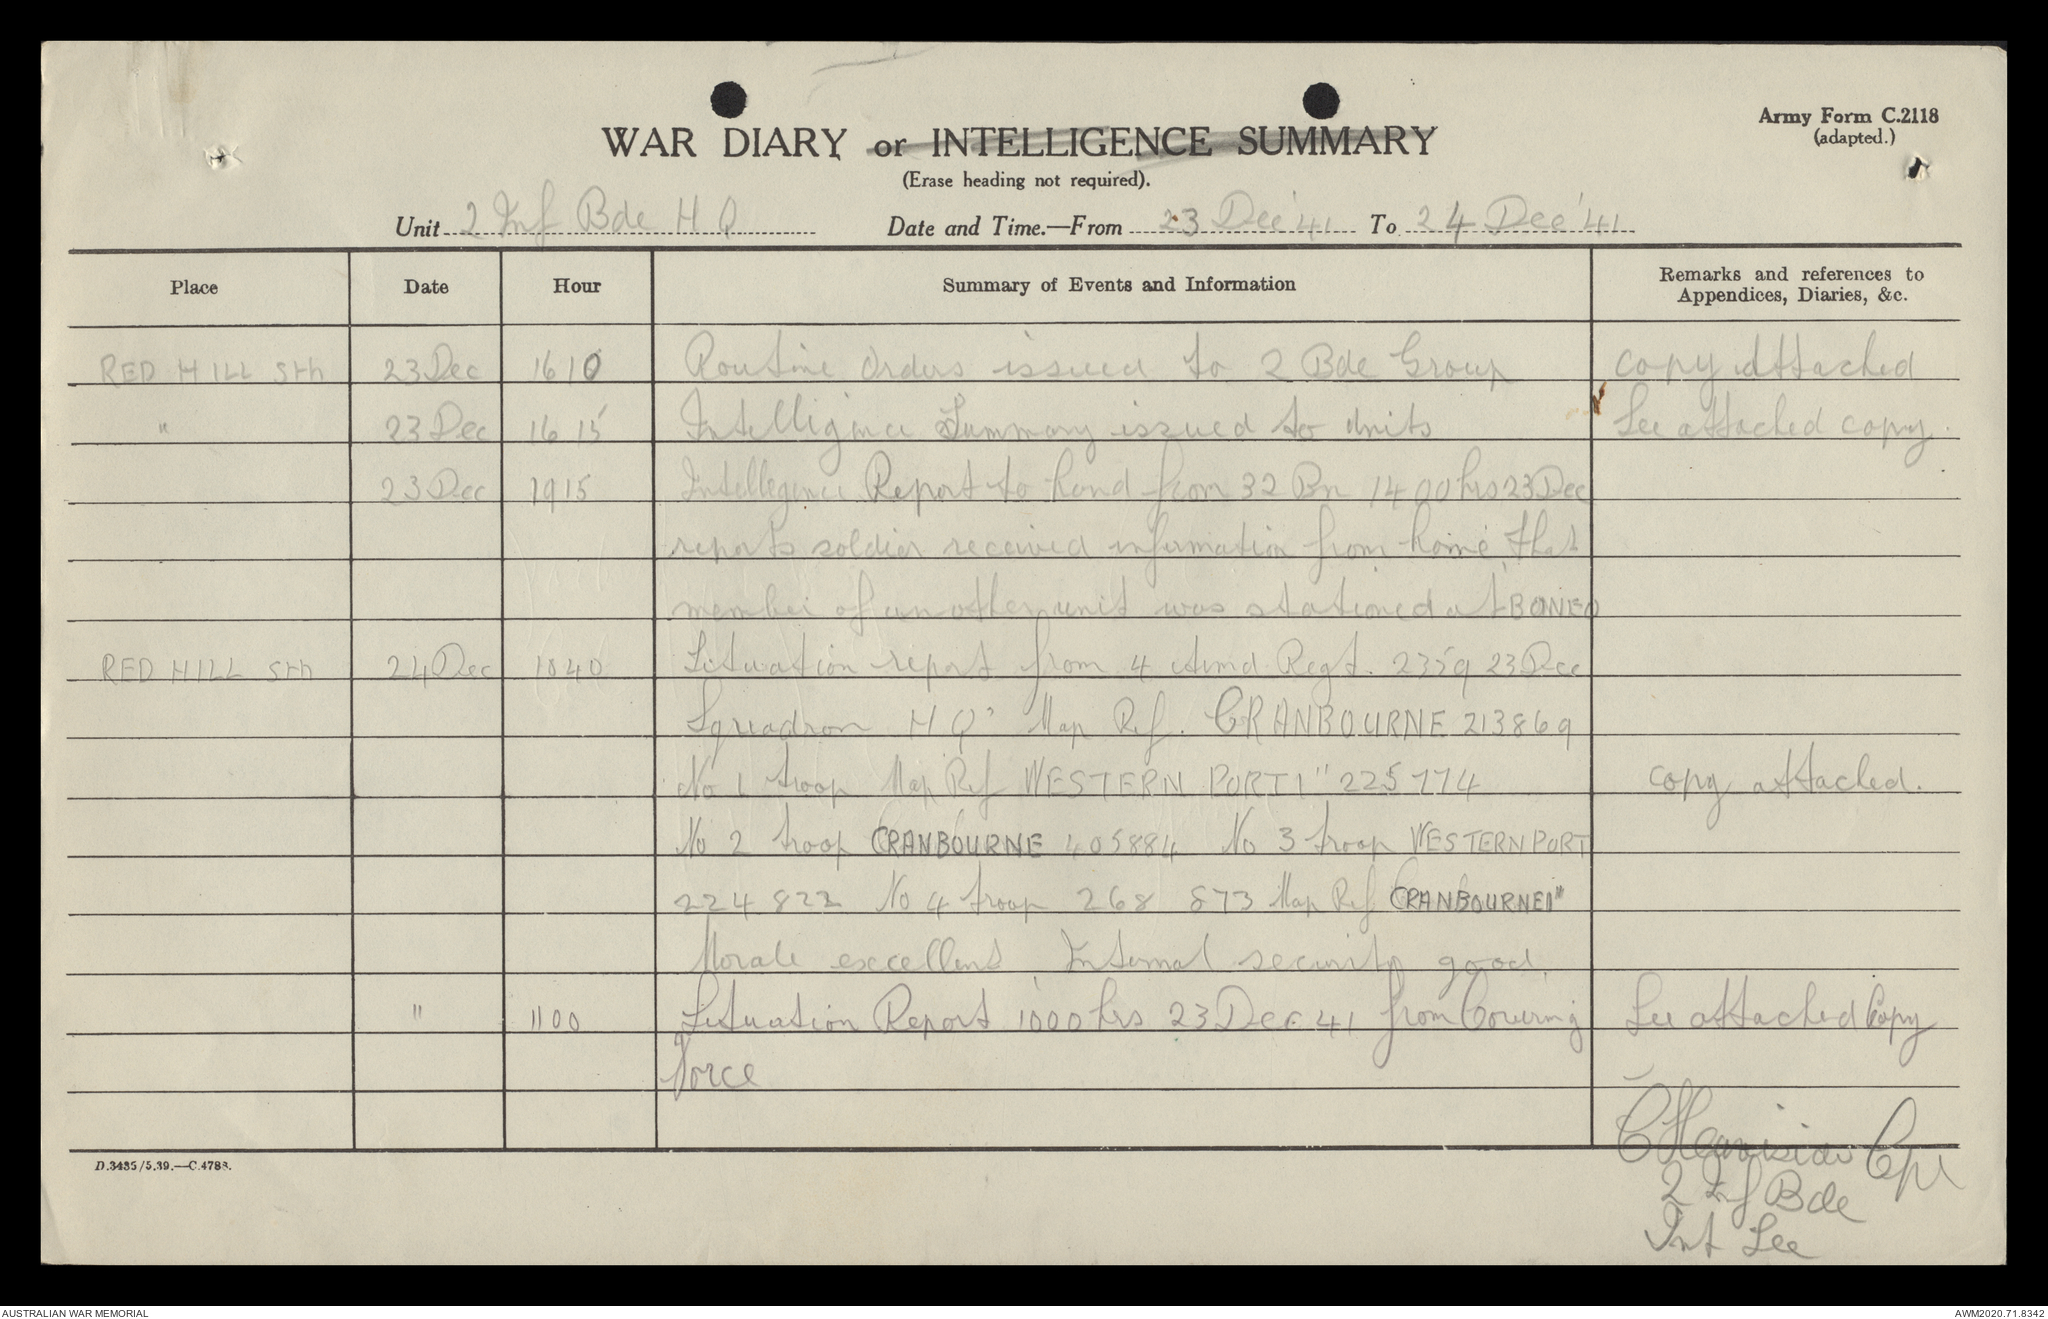 Army Form C.2118
(adapted.)
WAR DIARY or INTELLIGENCE SUMMARY
(Erase heading not required).
Unit 2 Inf Bde H Q Date and Time.—From 23 Dec '41 To 24 Dec '41
Place Date Hour Summary of Events and Information Remarks and references to Appendices, Diaries, &c.
RED HILL Sth 23 Dec 1610 Routine Orders issued to 2 Bde Group copy attached
" 23 Dec 1615 Intelligence Summary issued to units See attached copy.
23 Dec 1915 Intellegence Report to hand from 32 Bn 1400 hrs 23 Dec
reports soldier received information from home that
member of another unit was stationed at BONEO
RED HILL Sth 24 Dec 1040 Situation report from 4 Armd Regt. 2359 23 Dec
Squadron H Q' Map Ref. CRANBOURNE 213869
No 1 troop Map Ref WESTERN PORT 1" 225774 copy attached.
No 2 troop CRANBOURNE 405884 No 3 troop WESTERN PORT
224 822 No 4 troop 268 873 Map Ref CRANBOURNE 1"
Morale excellent Internal security good.
" 1100 Situation Report 1000 hrs 23 Dec 41 from Covering See attached Copy
Force
Cpl
2 Inf Bde
Int Sec
D.3435/5.39.—C.4788.
AUSTRALIAN WAR MEMORIAL AWM2020.71.8342